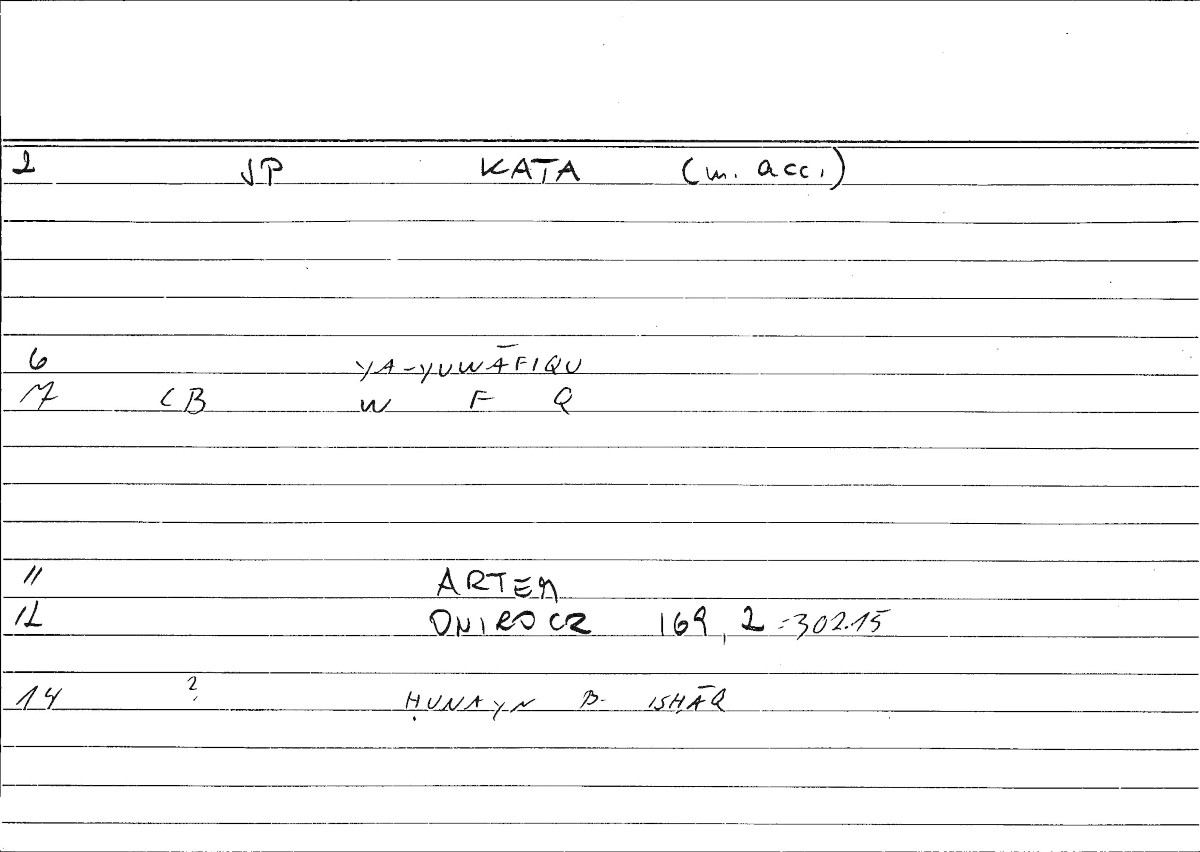 2 JP KATA (m. acc.)
6 YA-YUWĀFIQU
7 CB W F Q
11 ARTEM
12 ONIROCR 169, 2 = 302.15
14 ? ḤUNAYN B. ISḤĀQ